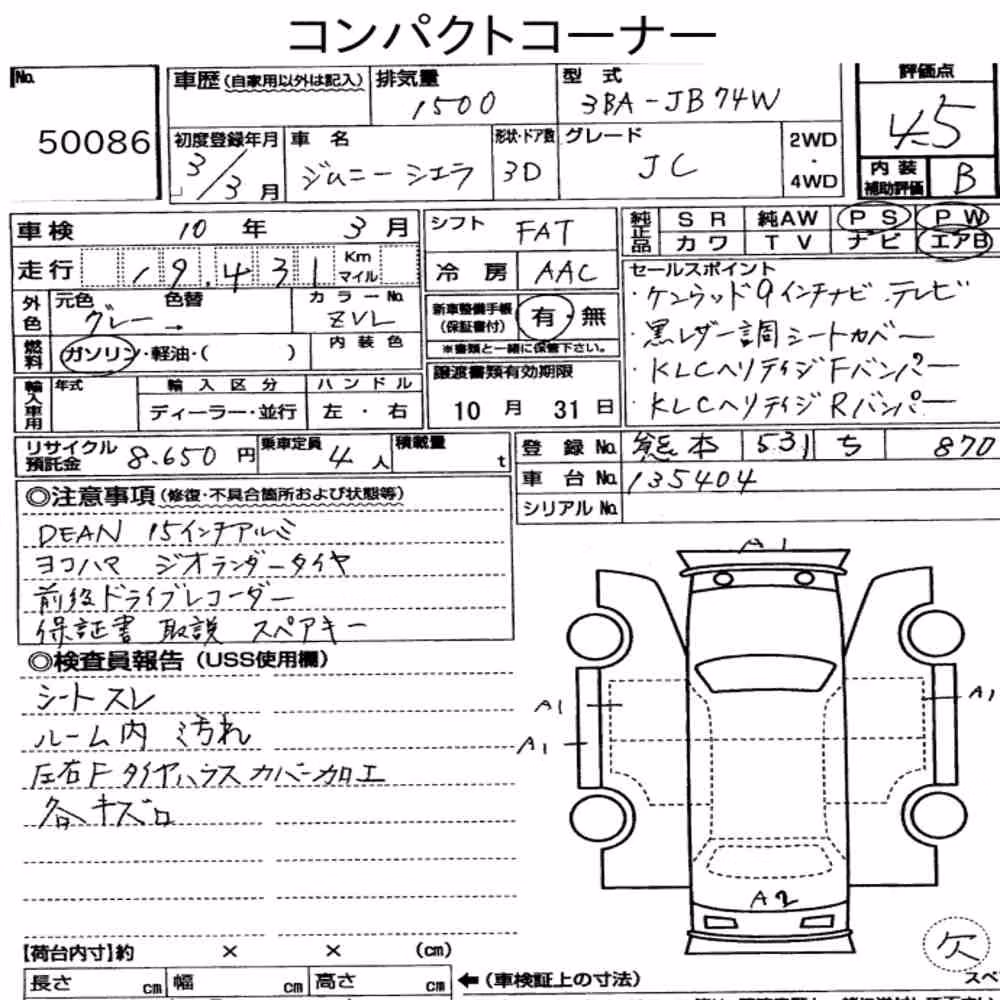 コンパクトコーナー
No. 50086
車歴(自家用以外は記入)
排気量 1500
型式 3BA-JB74W
評価点 4.5
初度登録年月 3/3月
車名 ジムニーシエラ
形状・ドア数 3D
グレード JC
2WD・4WD
内装補助評価 B
車検 10年 3月
シフト FAT
純正品 SR 純AW PS PW
カワ TV ナビ エアB
走行 19.431 Km マイル
冷房 AAC
セールスポイント
・ケンウッド9インチナビ.テレビ
・黒レザー調シートカバー
・KLCヘリテイジFバンパー
・KLCヘリテイジRバンパー
外色 元色 グレー → 色替
カラーNo. ZVL
新車整備手帳(保証書付) 有・無
※書類と一緒に保管下さい。
燃料 ガソリン・軽油・( )
内装色
輸入車用 年式 輸入区分 ハンドル
ディーラー・並行 左・右
譲渡書類有効期限
10月 31日
リサイクル預託金 8.650円
乗車定員 4人
積載量 t
登録No. 熊本 531 ち 870
車台No. 135404
シリアルNo.
◎注意事項(修復・不具合箇所および状態等)
DEAN 15インチアルミ
ヨコハマ ジオランダータイヤ
前後ドライブレコーダー
保証書 取説 スペアキー
◎検査員報告(USS使用欄)
シートスレ
ルーム内 ミ汚れ
左右Fタイヤハウスカバー加工
各キズロ
A1
A1 A1
A1
A2
欠
スペ
【荷台内寸】約 × × (cm)
長さ cm 幅 cm 高さ cm
←(車検証上の寸法)